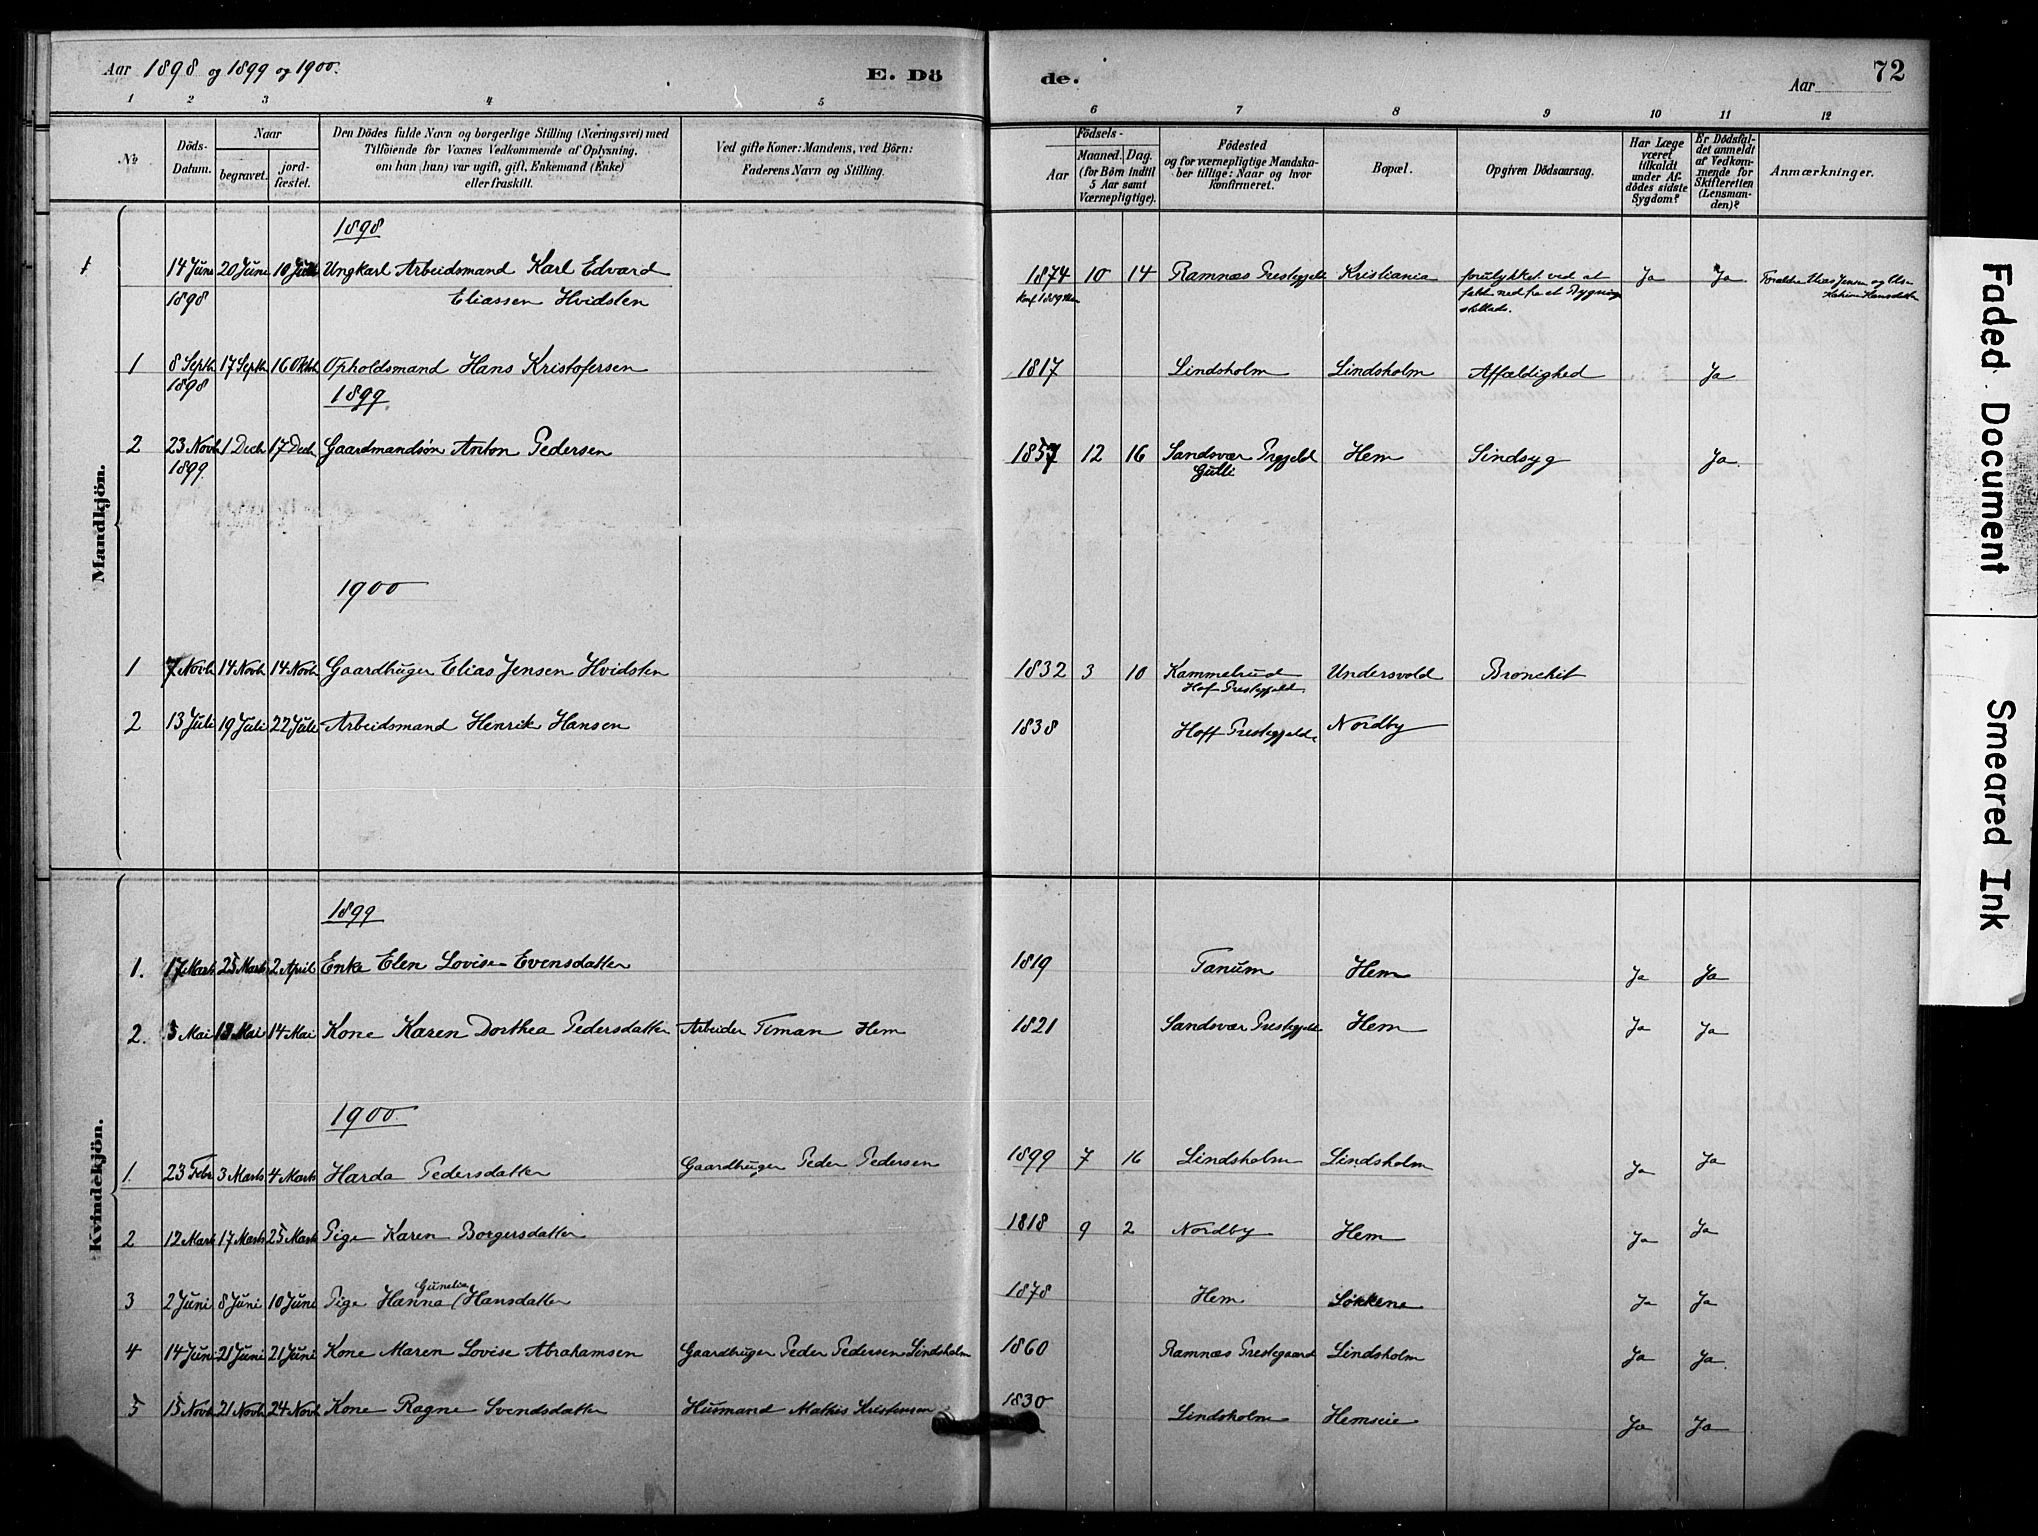 Aar 1898 og 1899 og 1900.
E. Dö
de.
Aar
72
1 2 3 4 5 6 7 8 9 10 11 12
No
Döds-Datum.
Naar
begravet.
jord-fæstet.
Den Dödes fulde Navn og borgerlige Stilling (Næringsvei) med
Tilföiende for Voxnes Vedkommende af Oplysning,
om han (hun) var ugift, gift, Enkemand (Enke)
eller fraskilt.
Ved gifte Koner: Mandens, ved Börn:
Faderens Navn og Stilling.
Födsels-
Aar
Maaned. Dag.
(for Börn indtil
5 Aar samt
Værnepligtige).
Födested
og for værnepligtige Mandska-
ber tillige: Naar og hvor
konfirmeret.
Bopæl.
Opgiven Dödsaarsag.
Har Læge
været
tilkaldt
under Af-
dödes sidste
Sygdom?
Er Dödsfal-
det anmeldt
af Vedkom-
mende for
Skifteretten
(Lensman-
den)?
Anmærkninger.
Mandkjön.
1898
14 Juni 20 Juni 10 Juli Ungkarl Arbeidsmand Karl Edvard 1874 10 14 Ramnæs Prestegjeld Kristiania forulykket ved at Ja Ja Forældre Elias Jensen og
1898 Eliassen Hvidsten falde ned fra et Bygnings
stillads.
1 8 Septb 17 Septb 16 Oktb Opholdsmand Hans Kristofersen 1817 Lindsholm Lindsholm Affældighed Ja
1898 1899
2 23 Novb 1 Decb 17 Decb Gaardmandsøn Anton Pedersen 1857 12 16 Sandsvær Prgjeld Hem Sindsyg Ja
1899 Gulli
1900
1 7 Novb 14 Novb 14 Novb Gaardbruger Elias Jensen Hvidsten 1832 3 10 Kammelrud Undersvold Bronchit
Hof Prestegjeld
2 13 Juli 19 Juli 22 Juli Arbeidsmand Henrik Hansen 1838 Hoff Prestegjeld Nordby
Kvindekjön.
1899
1. 17 Marts 25 Marts 2 April Enke Elen Lovise Evensdatter 1819 Tanum Hem Ja Ja
2. 5 Mai 13 Mai 14 Mai Kone Karen Dorthea Pedersdatter Arbeider Timan Hem 1821 Sandsvær Prestegjeld Hem Ja Ja
1900
1. 23 Febr 3 Marts 4 Marts Harda Pedersdatter Gaardbruger Peder Pedersen 1899 7 16 Lindsholm Lindsholm Ja Ja
2 12 Marts 17 Marts 25 Marts Pige Karen Borgersdatter 1818 9 2 Nordby Hem Ja Ja
Gunelia
3 2 Juni 8 Juni 10 Juni Pige Hanna Hansdatter 1878 Hem Løkkene Ja Ja
4 14 Juni 21 Juni 21 Juni Kone Maren Lovise Abrahamsen Gaardbruger Peder Pedersen Lindsholm 1860 Ramnæs Prestegaard Lindsholm Ja Ja
5 15 Novb 21 Novb 24 Novb Kone Ragne Svendsdatter Husmand Mathis Kristensen 1830 Lindsholm Hemseie Ja Ja
Faded Document
Smeared Ink